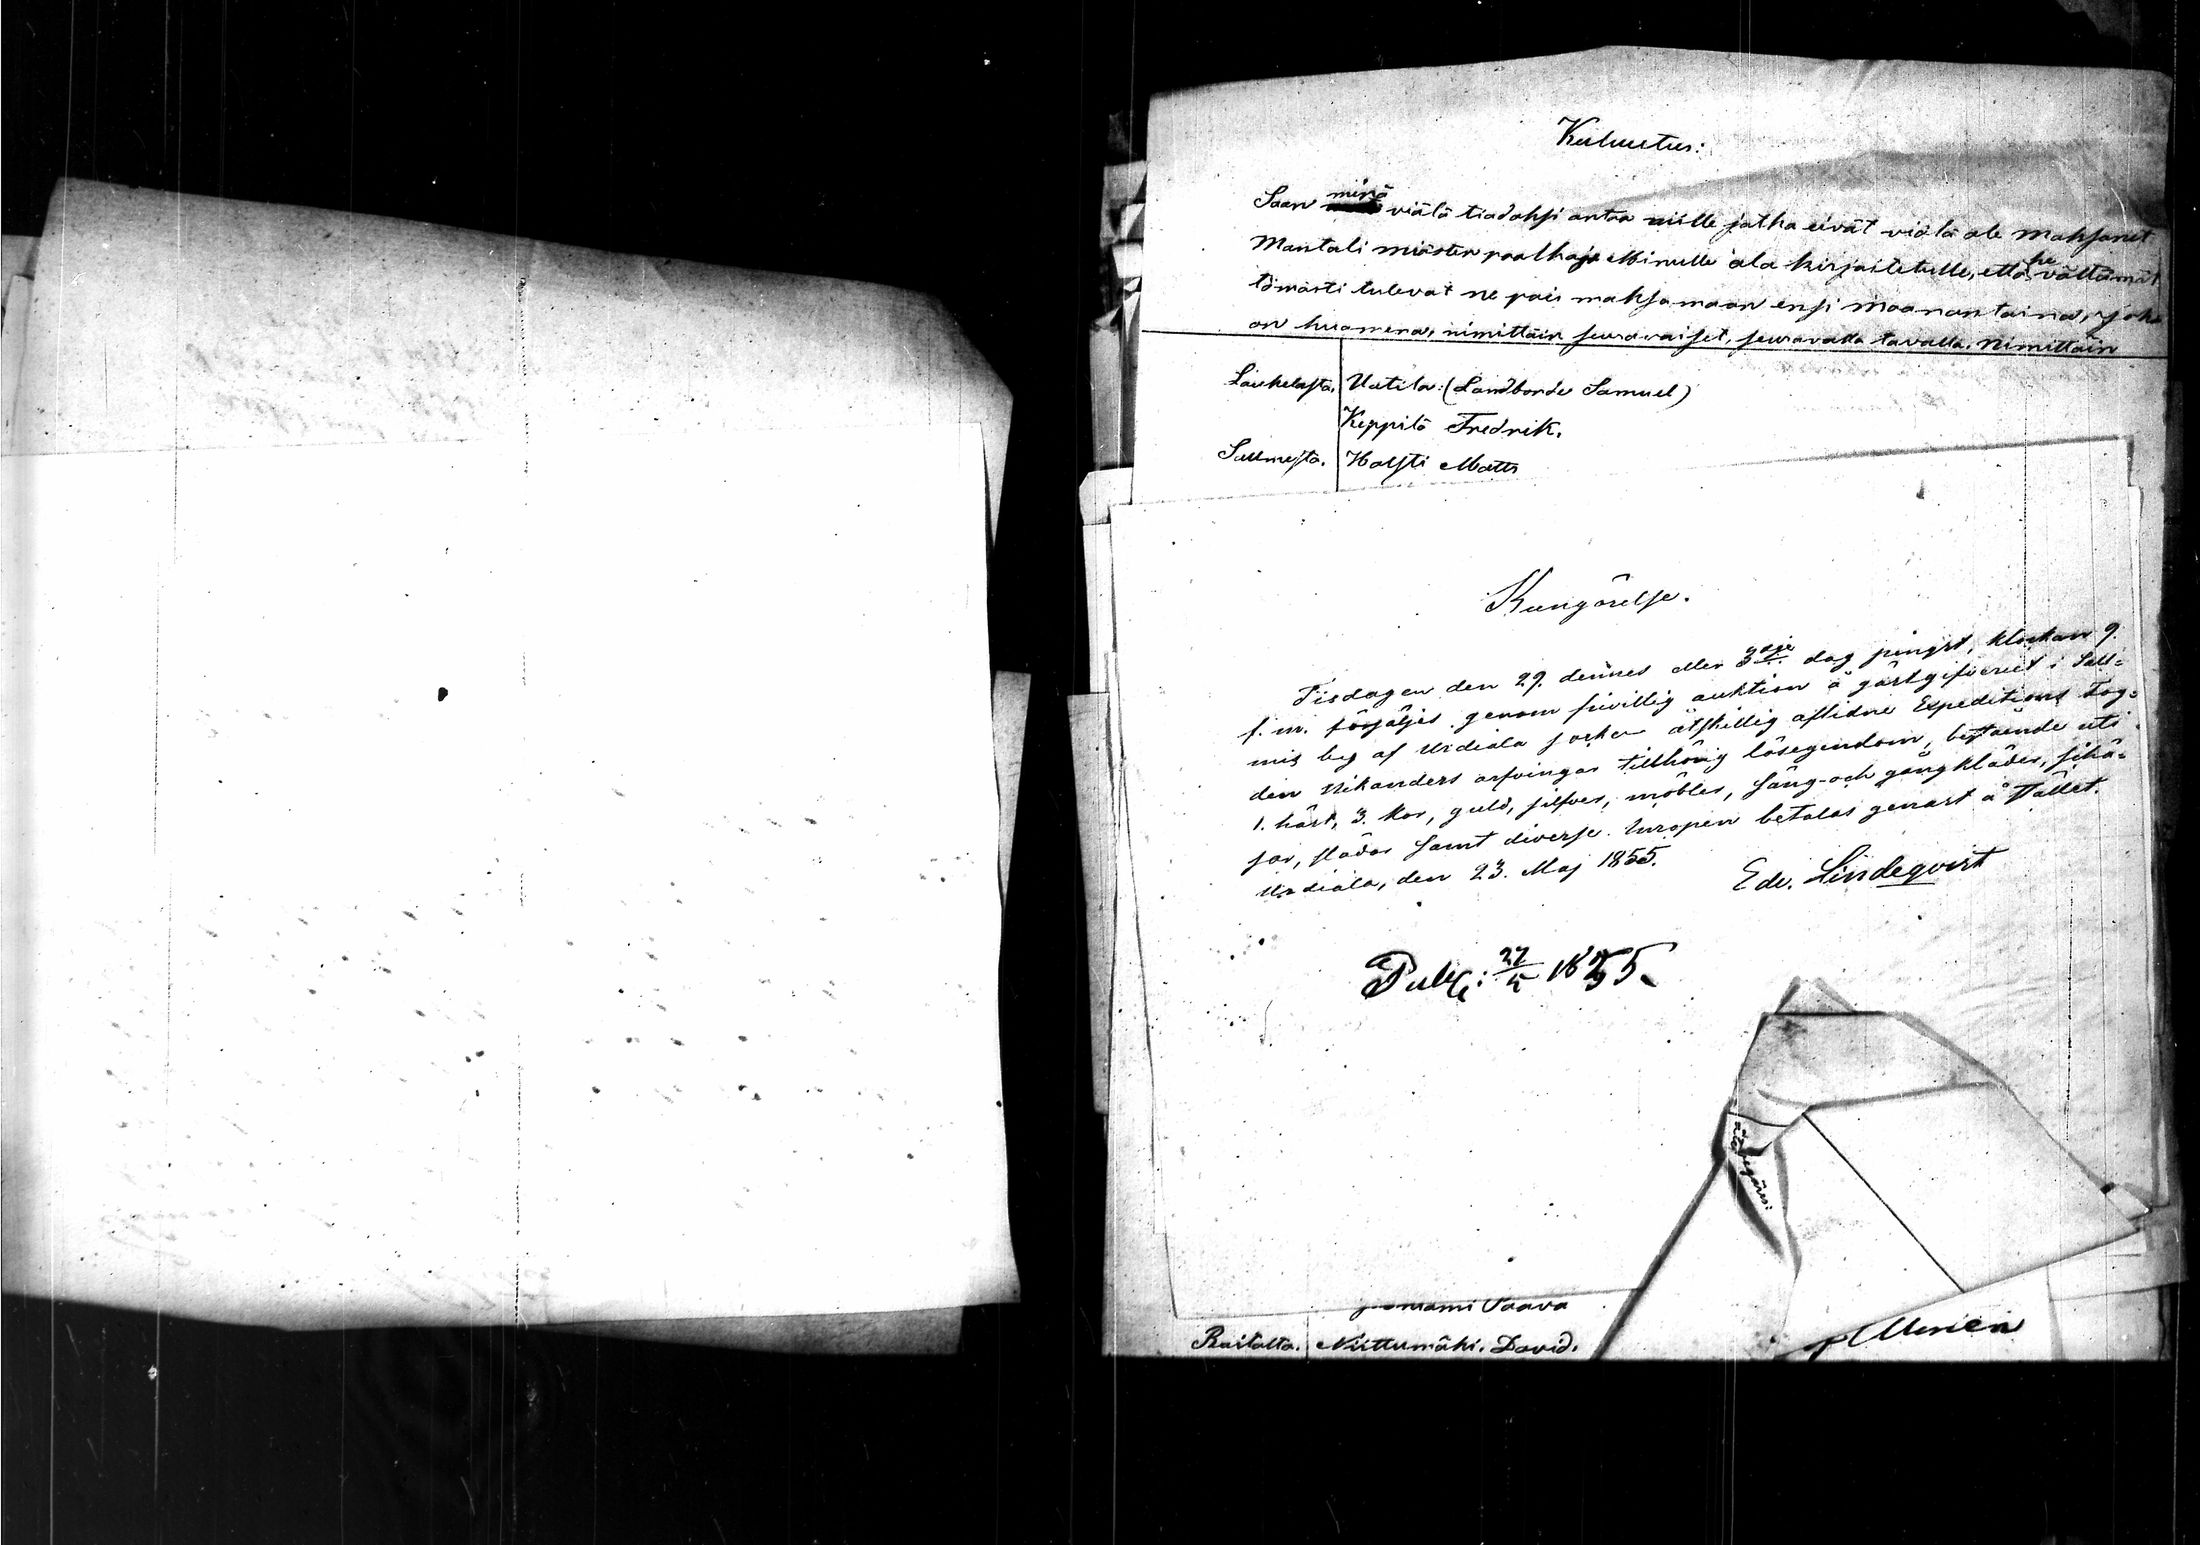 Kuluutus:
Saan minä vielä tiadoksi antaa niille jotka eivät vielä ole maksanet
Mantali miästen paalkaja Minulle ala kirjoitetulle, että he välttämät
tömästi tulevat ne pois maksamaan ensi maanantaina, joka
on huamena, nimittäin seuravaiset, seuravalla tavalla. Nimittäin
Laukelasta. Uutila: (Landbonde Samuel)
Keppilä Fredrik.
Sallmesta. Halsti Matts
Kungörelse.
Tisdagen den 29. dennes eller 3dje dag pingst, klockan 9.
f. m. försäljes genom frivillig auktion å gästgifveriet i Sall=
mis by af Urdiala socken åtskillig aflidne Expeditions Fog=
den Nikanders arfvingar tillhörig lösegendom, bestående uti
1. häst, 3. kor, guld, silfver, möbler, säng- och gångkläder, åkä=
jor, slädor samt diverse. Inropen betalas genast å stället.
Urdiala, den 23. Maj 1855.
Edv. Lindeqvist
Publ: 27/5 1855.
Vaava
Raitalta. Niittumäki. David.